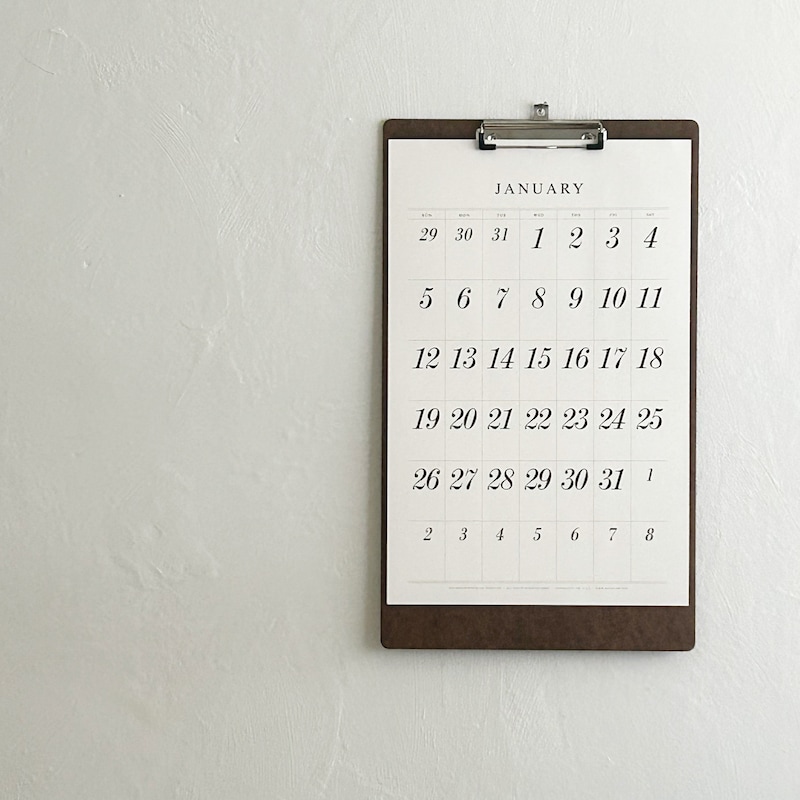 JANUARY
SUN MON TUE WED THU FRI SAT
29 30 31 1 2 3 4
5 6 7 8 9 10 11
12 13 14 15 16 17 18
19 20 21 22 23 24 25
26 27 28 29 30 31 1
2 3 4 5 6 7 8